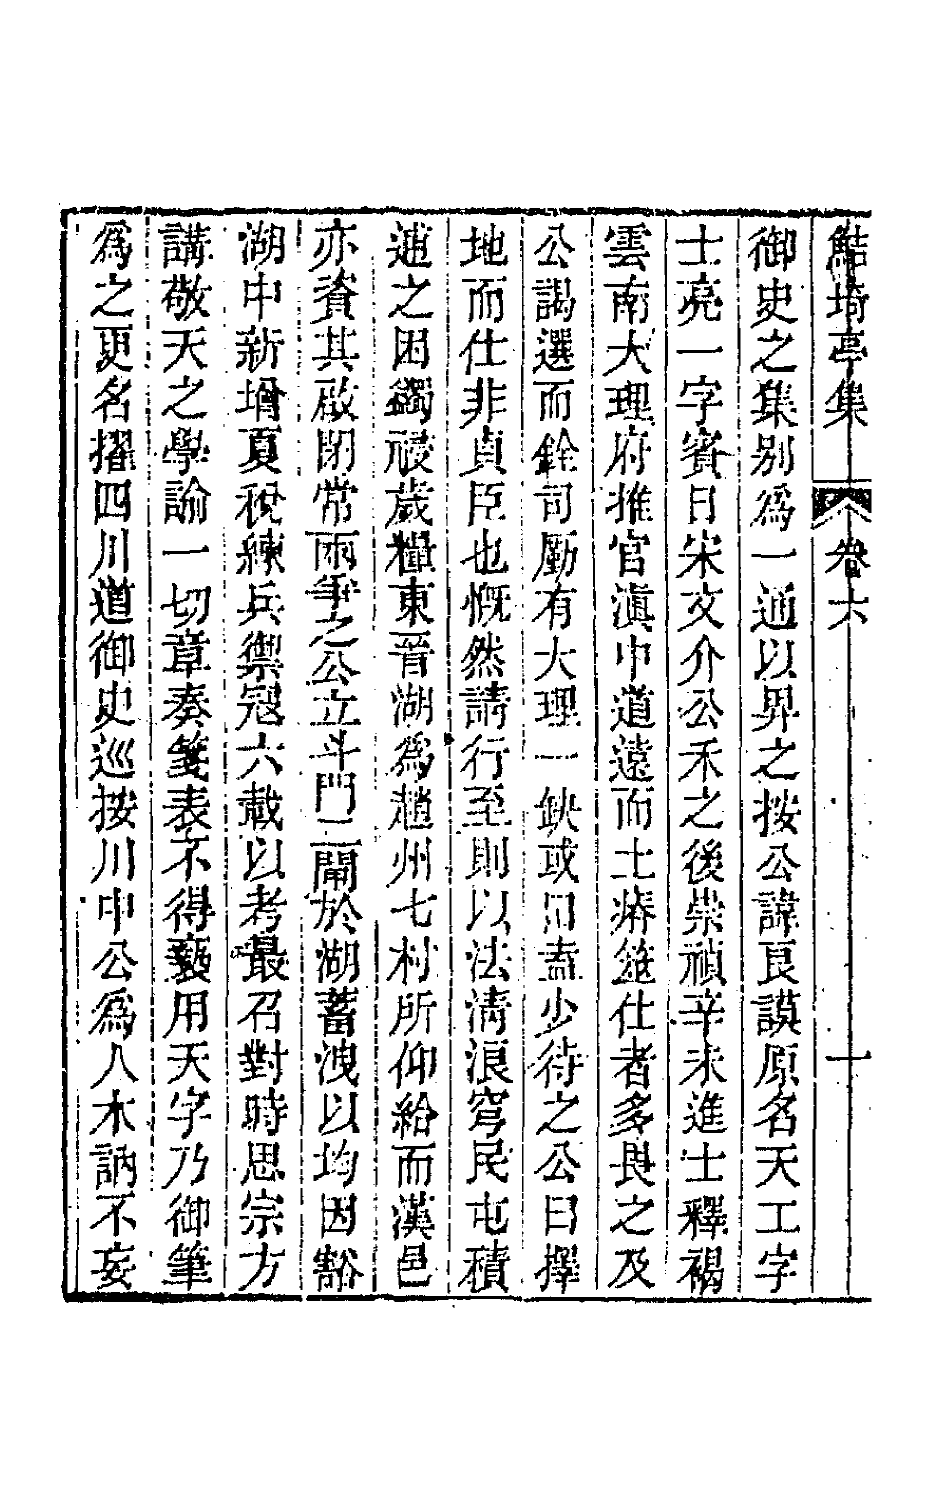 鮚埼亭集　卷六　十
御史之集别為一通以畀之按公諱良謨原名天工字
士亮一字賓日宋文介公禾之後崇禎辛未進士釋褐
雲南大理府推官滇中道遠而土瘠筮仕者多畏之及
公謁選而銓司勵有大理一缺或曰盍少待之公曰擇
地而仕非貞臣也慨然請行至則以法淸浪穹民屯積
逋之困蠲祲歲糧東晉湖為趙州七村所仰給而漢邑
亦資其啟閉常雨爭之公立斗門一閘於湖蓄洩以均因豁
湖中新增夏稅練兵禦冦六載以考最召對時思宗方
講敬天之學諭一切章奏箋表不得褻用天字乃御筆
為之更名擢四川道御史巡按川中公為人木訥不妄